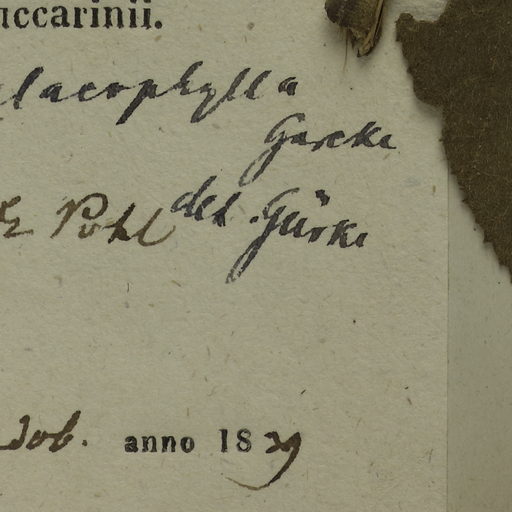 uccarinii.
elaeophylla
Garcke
Pohl det. Gürke
dob. anno 1839